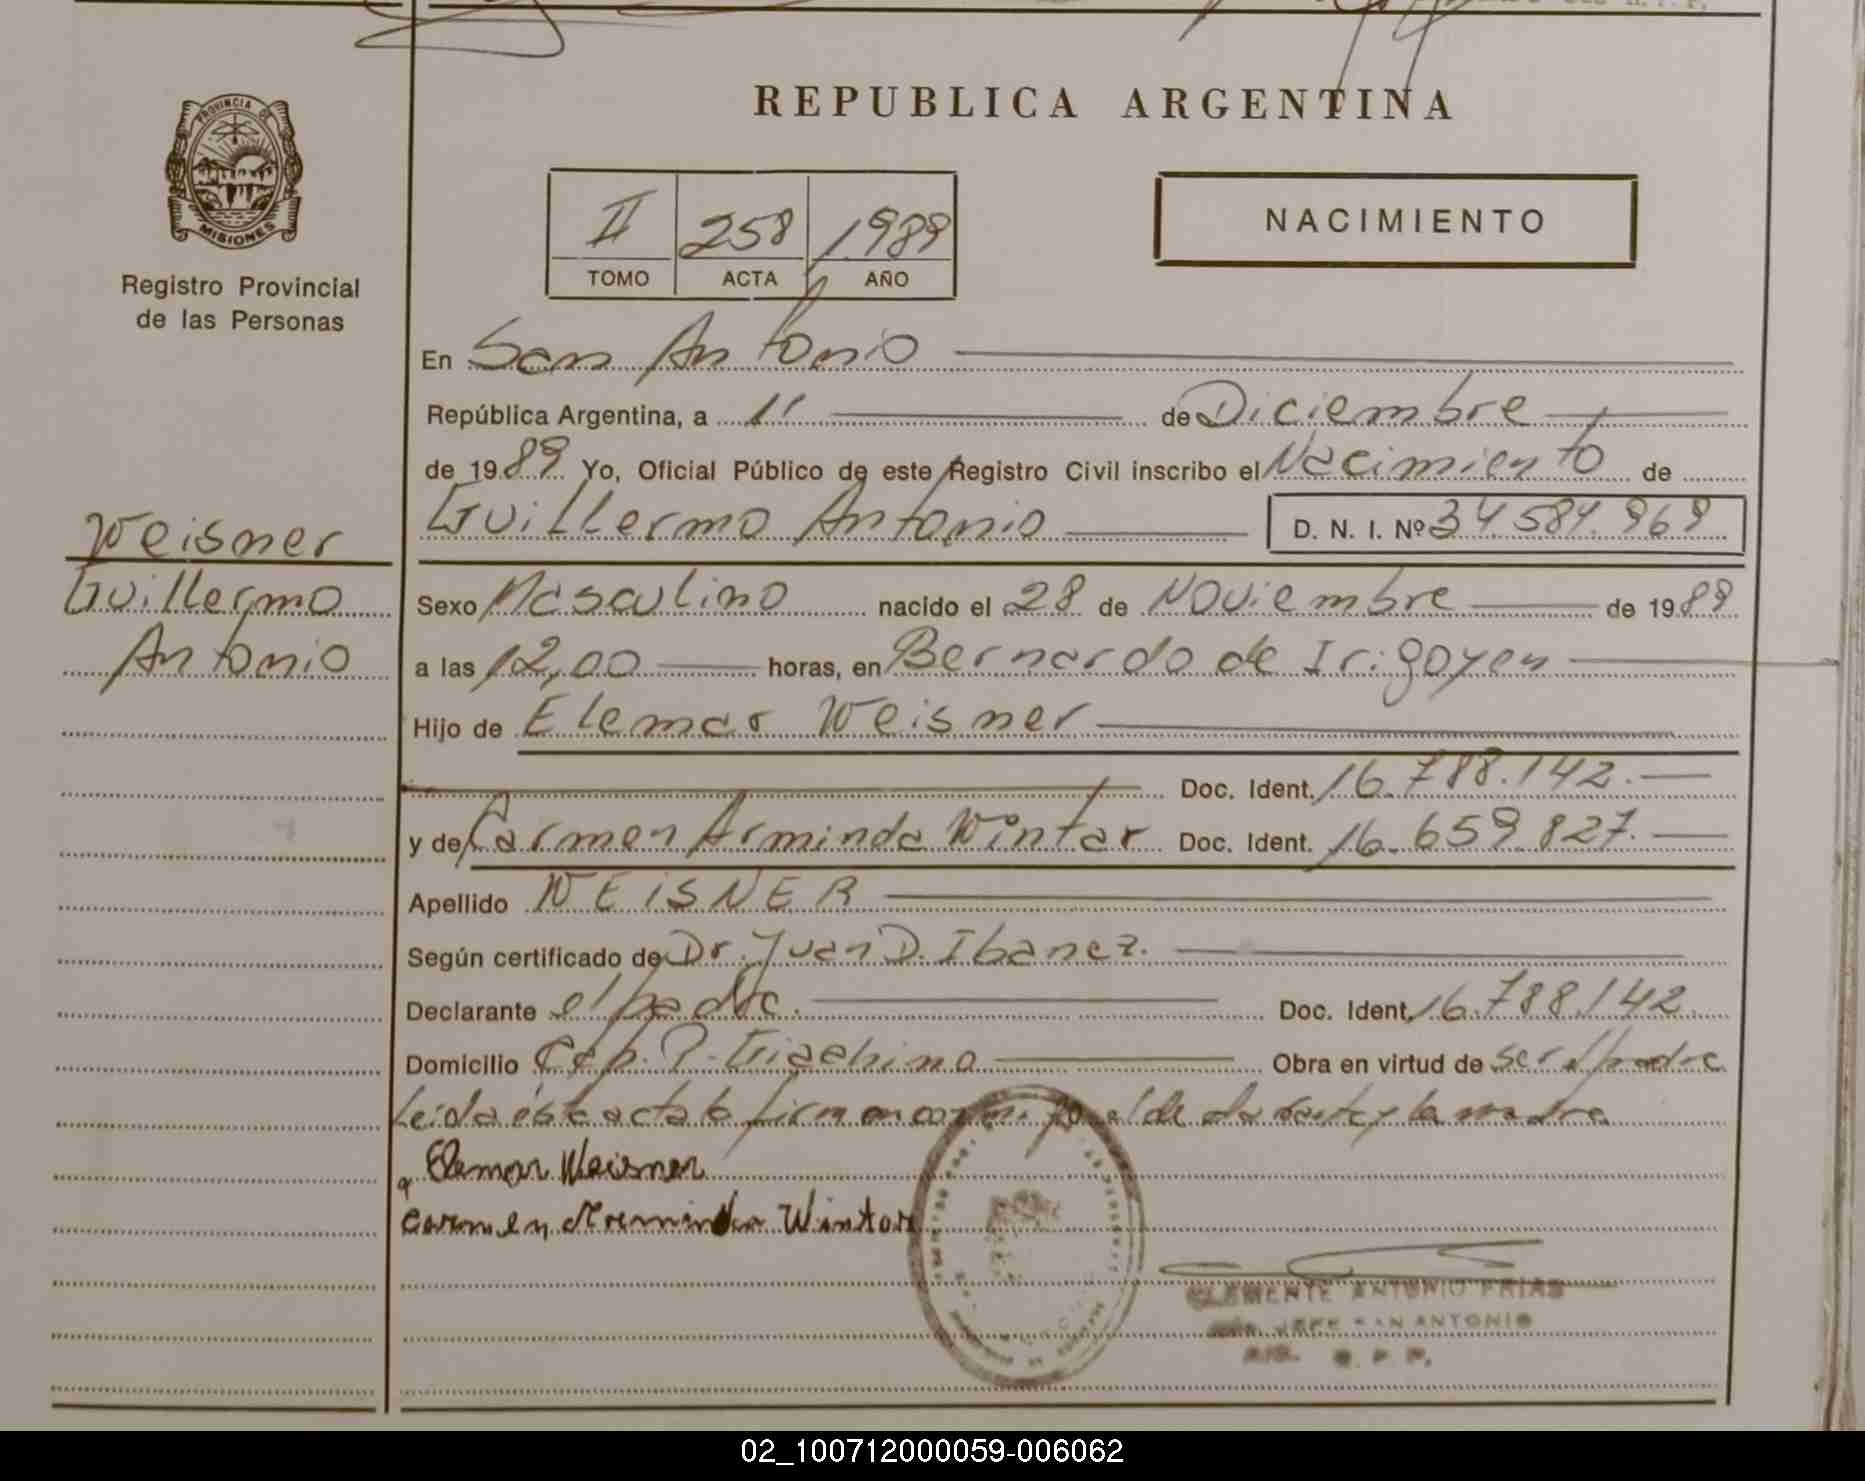 REPUBLICA ARGENTINA
PROVINCIA DE
MISIONES
Registro Provincial
de las Personas
II 258 1989
TOMO ACTA AÑO
NACIMIENTO
En San Antonio
República Argentina, a 11 de Diciembre
de 1989 Yo, Oficial Público de este Registro Civil inscribo el Nacimiento de
Guillermo Antonio D. N. I. Nº 34.584.969
Weisner
Guillermo
Antonio
Sexo Masculino nacido el 28 de Noviembre de 1989
a las 12,00 horas, en Bernardo de Irigoyen
Hijo de Elemar Weisner
Doc. Ident. 16.788.142.
y de Carmen Arminda Wintar Doc. Ident. 16.659.827.
Apellido WEISNER
Según certificado de Dr. Juan D. Ibanez.
Declarante el padre. Doc. Ident. 16.788.142.
Domicilio Cap. P. Giachino Obra en virtud de ser el padre
Leida ésta acta la firman conmigo el declarante y la madre
Elemar Weisner
Carmen Arminda Wintar
CLEMENTE ANTONIO FRIAS
JEFE SAN ANTONIO
R. P. P.
02_100712000059-006062